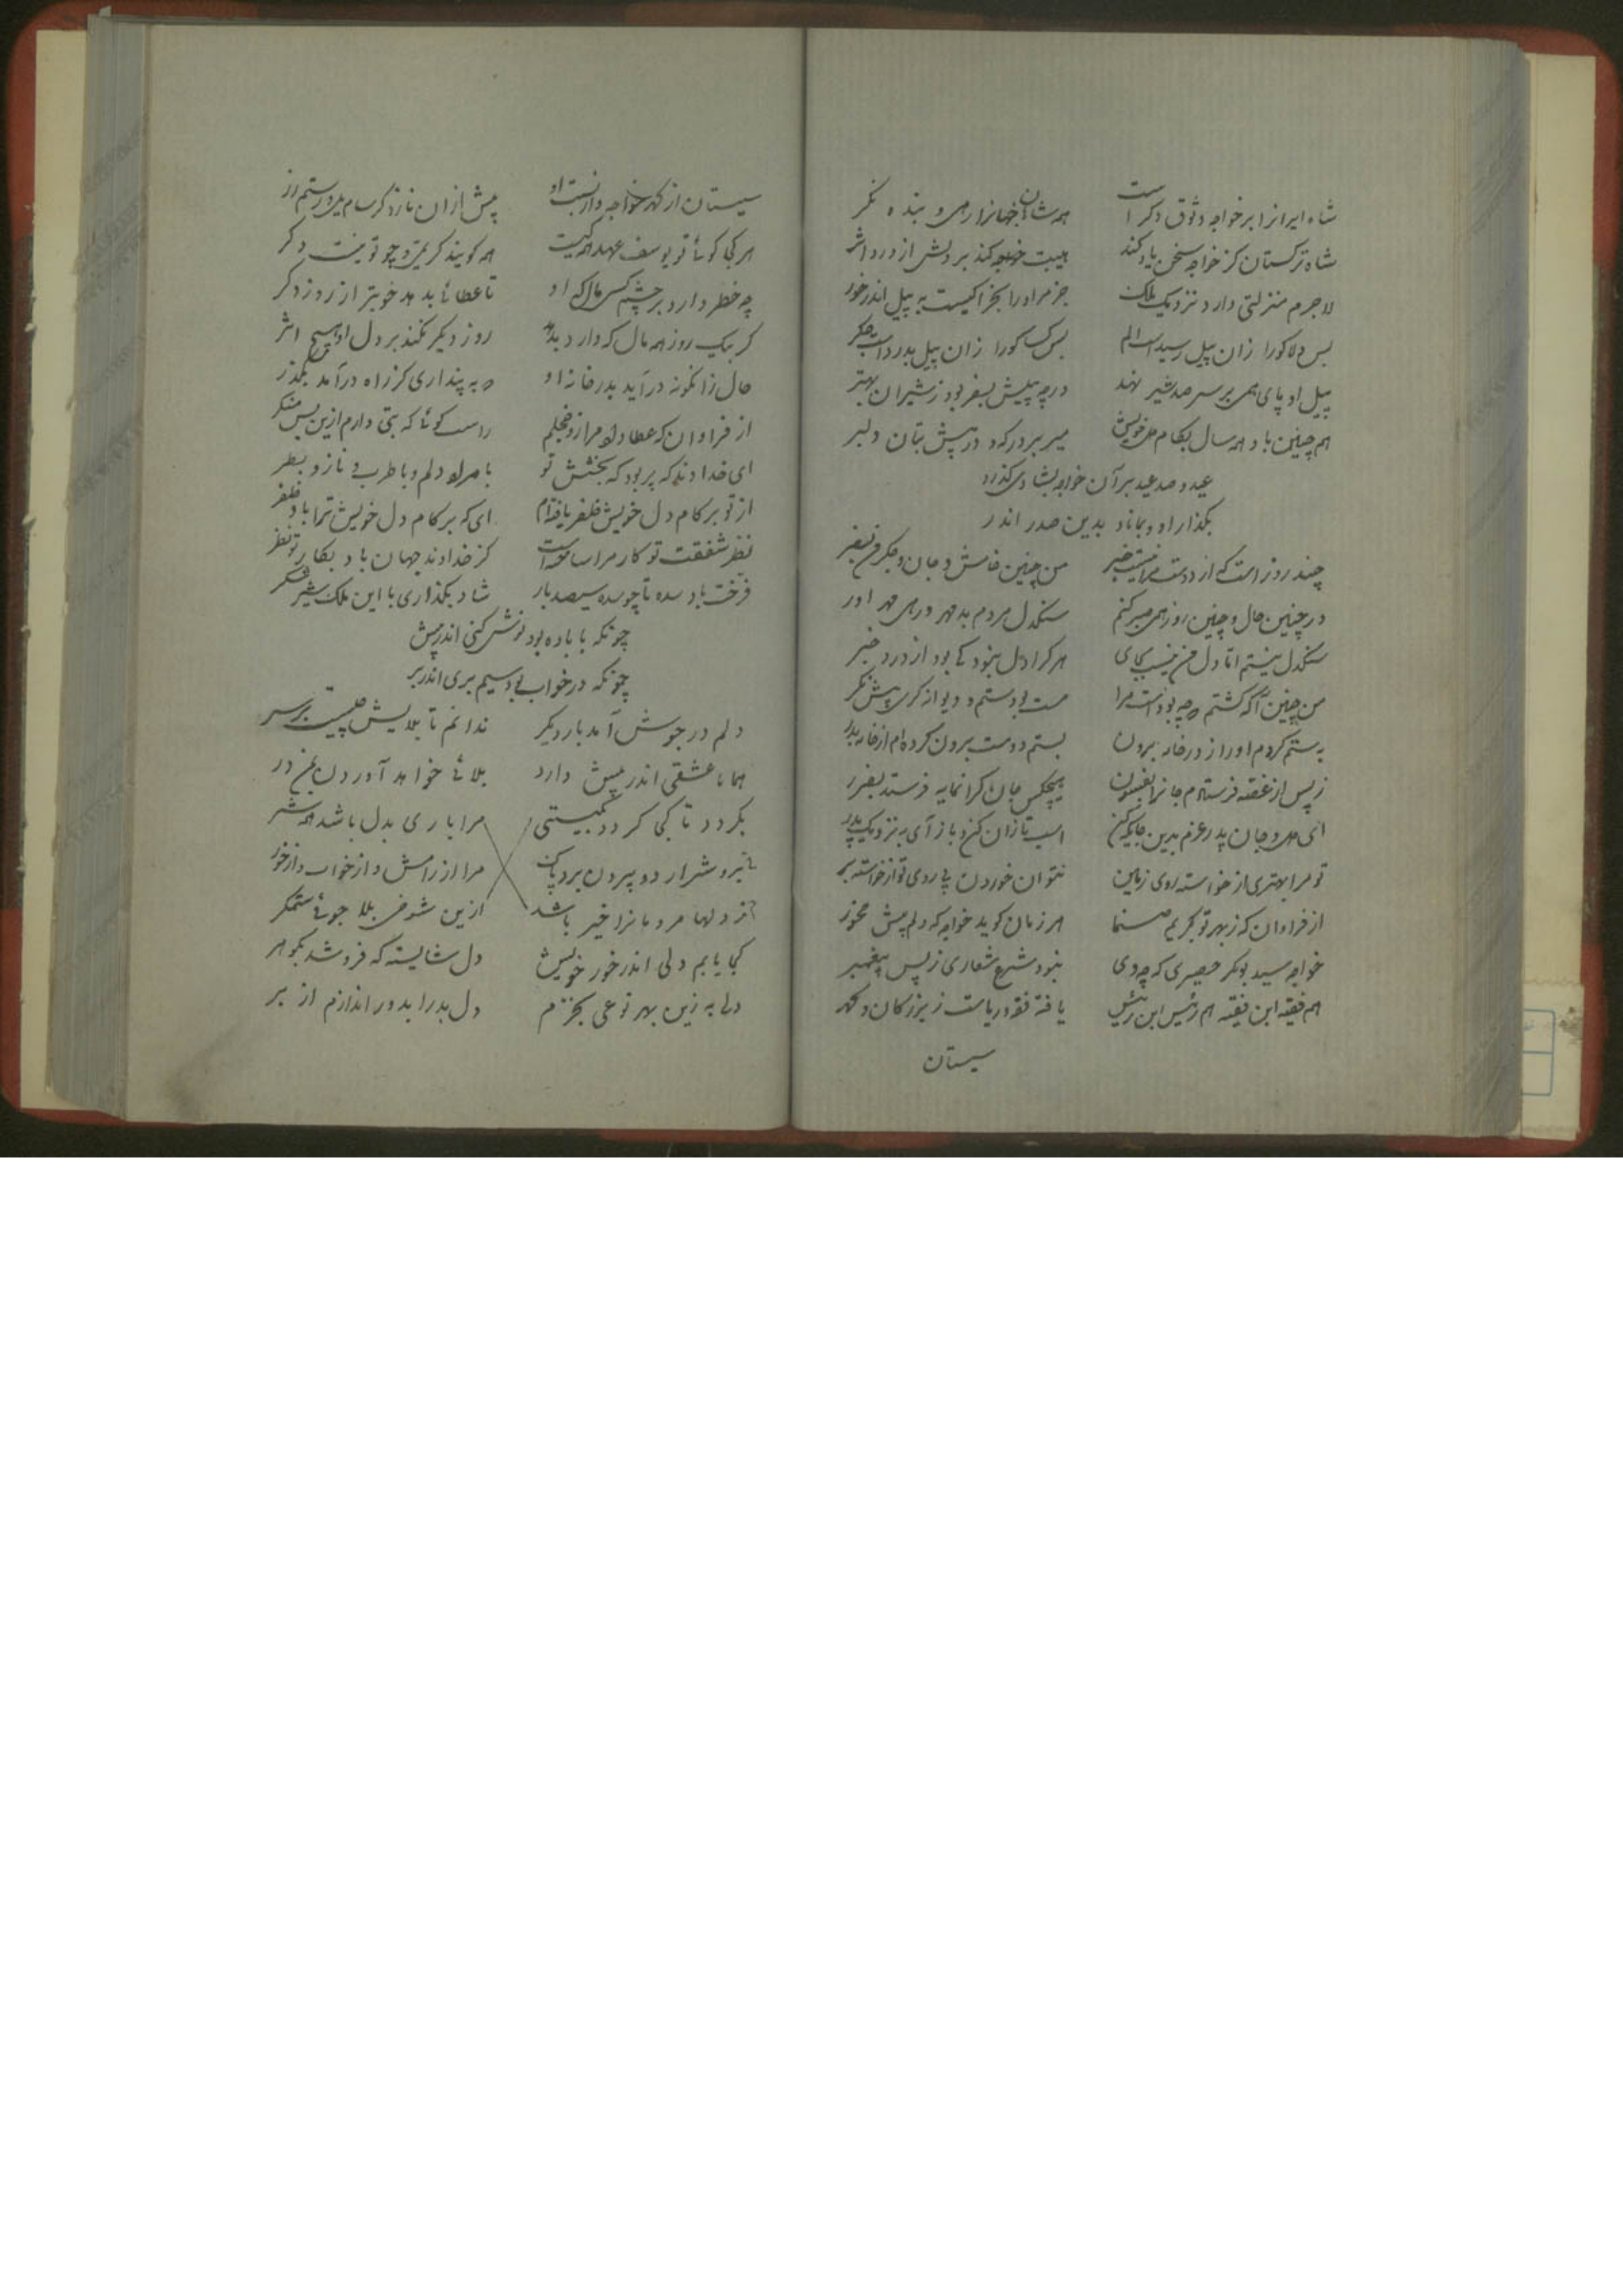 شاه ایرانرا بر خواجه وثوق دگر است همه شاهان جهانرا رهی و بنده نگر
شاه ترکستان کز خواجه سخن یاد کند هیبت خواجه کند بر دلش از درد اثر
لاجرم منزلتی دارد نزدیک ملک جز مر او را بخزا کیست به پیل اندر خور
بس دلا کورا زان پیل رسید است الم بس کسا کورا زان پیل بدرد است جگر
پیل او پای همی بر سر صد شیر نهد در چه پیلش بسفر بود ز شیران بهتر
هم چنین باد همه سال بکام دل خویش میر برد رکه و در پیش بتان دلبر
عید و صد عید بر آن خواجه بشادی گذرد
بگذار او و بماناد بدین صدر اندر
چند روز است که از دوست مرا نیست خبر من چنین خامش و جان و جگر من بسفر
در چنین حال و چنین روز همی صبر کنم سنگدل مردم بد مهر و رهی مهر آور
سنگدل نیستم اما دل من نیست بجای هر کرا دل نبود کی بود از درد خبر
من چنین آگه گشتم که چه بوده است مرا مست بودستم و دیوانه گری پیش نگر
به ستم کردم او را ز در خانه برون بستم دوست برون کرده ام از خانه بدر
زپس از غفته فرستادم جانرا بفسون هیچکس جان گرانمایه فرستد بسفر
ای مه و جان پدر عزم بدین جایگه کن اسب تازان کن و باز آی به نزدیک پدر
تو مرا بهتری از خواسته روی زمین نتوان خوردن بی روی تو از خواسته بر
از فراوان که ز بهر تو بگریم صنما هر زمان گوید خواجه که دلم پیش مخور
خواجه سید بوبکر حصیری که چو وی نبود شرع شعاری زپس پیغمبر
هم فقیه ابن فقیه هم رئیس ابن رئیس یافته فقه و ریاست ز بزرگان و گهر
سیستان
سیستان از گهر خواجه و از نسبت او پیش از آن نازد کز سام یل و رستم زر
هر کجا گوئی تو یوسف عهد همه کیست همه گویند کریمی و چو تو نیست دگر
چه خطر دارد بر چشم کسی مال که او تا عطائی بدهد خوبتر از روز دگر
گر بیک روز همه مال که دارد بدهد روز دیگر نکند بر دل او هیچ اثر
مال زانگونه در آید بدر خانه او که به پنداری کز راه در آمد بگذر
از فراوان که عطا داد مرا زو خجلم راست گوئی که بتی دارم ازین پس منگر
ای خداوند که پر بود که بخشش تو با مراد دلم و با طرب و ناز و بطر
از تو بر کام دل خویش ظفر یافته ام ای که بر کام دل خویش ترا باد ظفر
نظر شفقت تو کار مرا ساخته است کز خداوند جهان باد بکار تو نظر
فرخت باد سده تا چو سده سیصد بار شاد بگذاری با این ملک شیر شکر
چونکه با باده بود نوش کنی اندر پیش
چونکه در خواب بود سیم بری اندر بر
دلم در جوش آمد بار دیگر ندانم تا بلایش چیست بر سر
همانا عشقی اندر پیش دارد بلائی خواهد آوردن بمن در
بگردد تا کجی گردد بگیتی مرا باری بدل باشد همه شر
مرا از رامش و از خواب و از خور
ز دلها مردمانرا خیر باشد ازین شوخی بلا جوئی ستمگر
کجا یابم دلی اندر خور خویش دل شایسته که فروشد بگوهر
دلی به زین بهر نوعی بخرم دل بد را بدور اندازم از بر